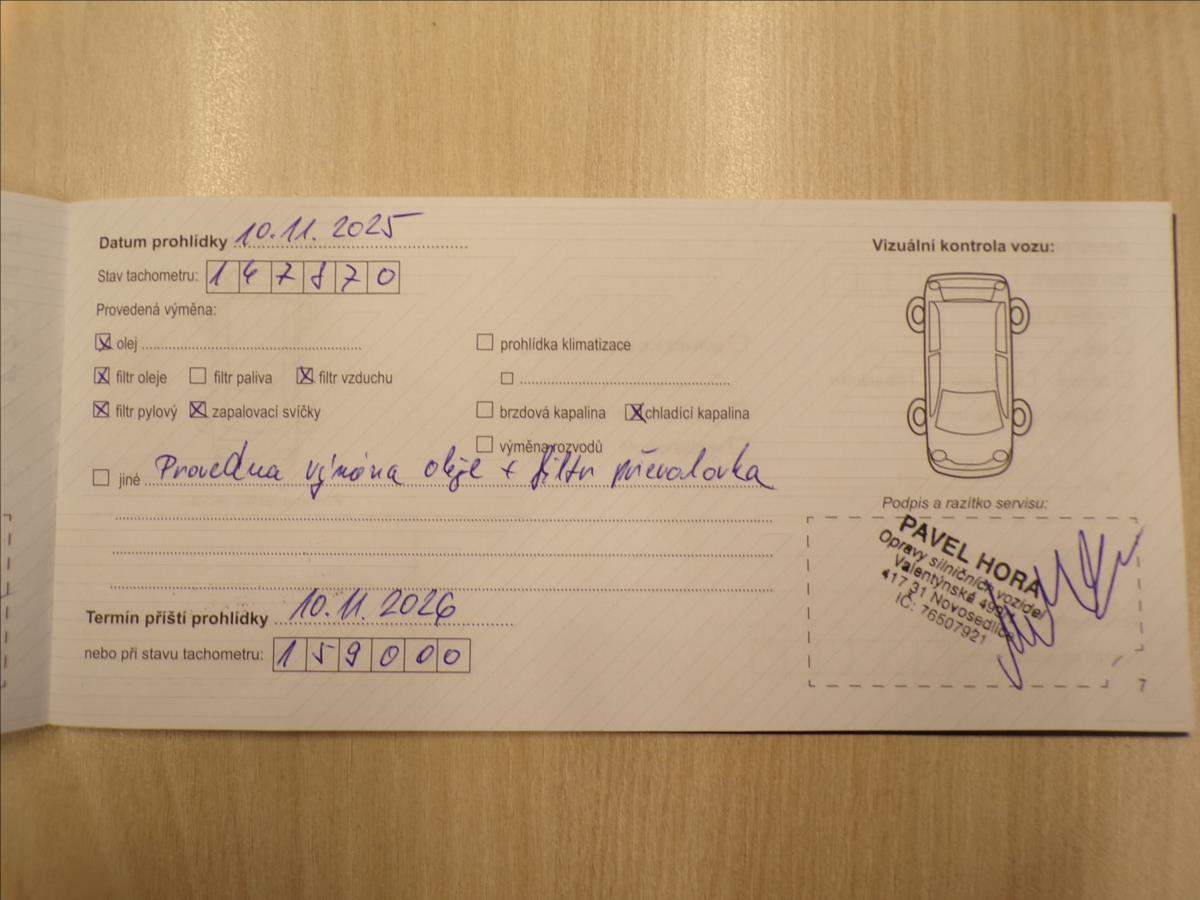 Datum prohlídky 10.11. 2025
Stav tachometru: 147870
Provedená výměna:
olej
prohlídka klimatizace
filtr oleje filtr paliva filtr vzduchu
filtr pylový zapalovací svíčky
brzdová kapalina chladící kapalina
výměna rozvodů
jiné Provedna výměna oleje + filtr převodovka
Termín příští prohlídky 10.11. 2026
nebo při stavu tachometru: 159000
Vizuální kontrola vozu:
Podpis a razítko servisu:
PAVEL HORA
Opravy silničních vozidel
Valentýnská
417 31 Novosedlice
IČ: 76507921
7